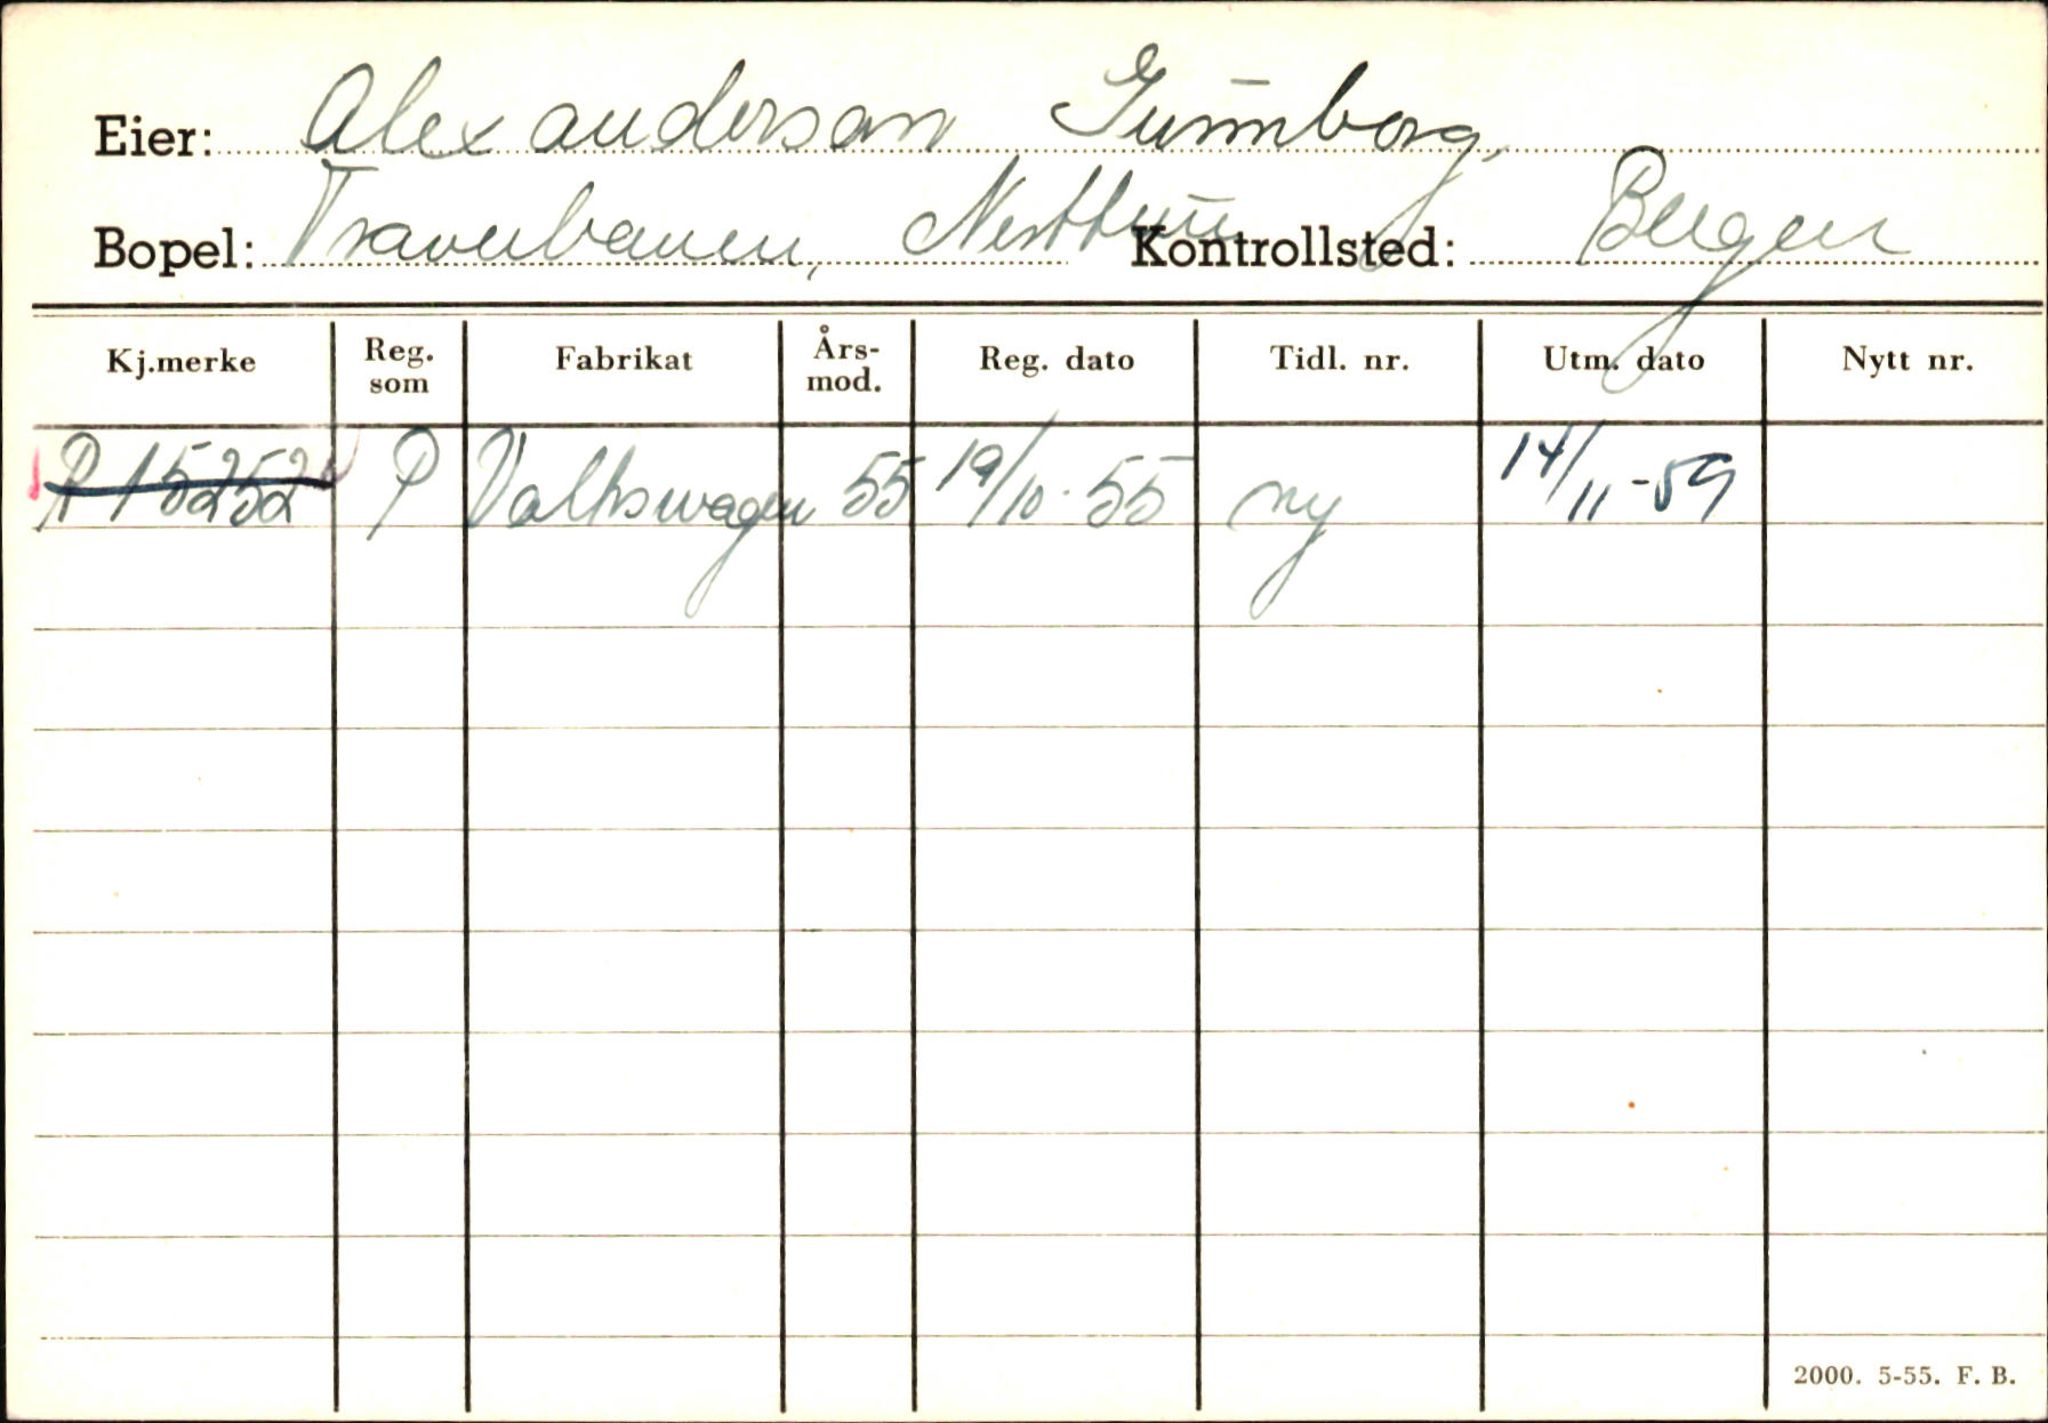 Eier: Alexanderson Gunnborg,
Bopel: Traverbanen, Nesttun Kontrollsted: Bergen
Kj.merke Reg. som Fabrikat Års-mod. Reg. dato Tidl. nr. Utm. dato Nytt nr.
R 15252 P Volkswagen 55 19/10-55 ny 14/11-59
2000. 5-55. F. B.